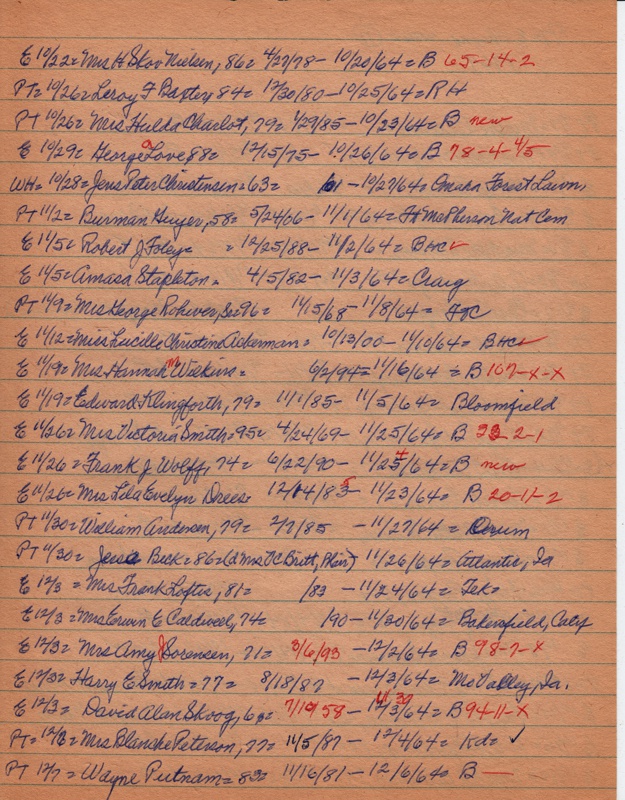 E 10/22= Mrs H Skov Nielsen, 86= 4/27/78- 10/20/64= B 65-14-2
PT= 10/26= Leroy F Baxter, 84= 12/30/80-10/25/64= RH
PT 10/26= Mrs Hulda Charlot, 79= 4/29/85-10/23/64= B new
E 10/29= George a Love 88= 12/15/75- 10/26/64= B 78-4-4/5
WH= 10/28= Jens Peter Christensen=63= /01 -10/27/64= Omaha Forest Lawn,
PT 11/2= Burman Guyer, 58= 5/24/06- 11/1/64= Ft McPherson Nat Cem
E 11/5= Robert J Foley= = 12/25/88- 11/2/64= BHC✓
E 11/5= Amasa Stapleton= 4/5/82- 11/3/64= Craig
PT 11/9= Mrs George Rohwer, Sr=96= 11/15/68- 11/8/64=
E 11/12= Miss Lucille Christine Ackerman= 10/13/00- 11/10/64= BHC✓
E 11/19= Mrs Hannah M Wilkins= 6/2/94= 11/16/64 = B 107-X-X
E 11/19= Edward Klingforth, 79= 11/1/85- 11/5/64= Bloomfield
E 11/26= Mrs Victoria Smith=95= 4/24/69- 11/25/64= B 2-1
E 11/26= Frank J Wolff, 74= 6/22/90- 11/24/64= B new
E 11/26= Mrs Lila Evelyn Drees= 12/14/85- 11/23/64= B 20-11-2
PT 11/30= William Andersen, 79= 2/7/85 -11/27/64= Orum
PT 11/30= Beck=86=(d Mrs VC Britt, Plair) 11/26/64= Atlantic, Ia
E 12/3 = Mrs Frank Loftis, 81= /83 -11/24/64= Tek=
E 12/3= Mrs Erwin E Caldwell, 74= /90-11/20/64= Bakersfield, Calif
E 12/3= Mrs Amy J Sorensen, 71= 3/6/93 -12/2/64= B 98-7-X
E 12/3= Harry E Smith=77= 8/18/87 -12/3/64= Mo Valley, Ia.
E 12/3= David Alan Skoog, 6= 7/19/58- 11/30/64= B 94-11-X
PT= 12/8= Mrs Blanche Peterson, 77= 11/5/87- 12/4/64= Kd= ✓
PT 12/7= Wayne Putnam=83= 11/16/81-12/6/64= B —